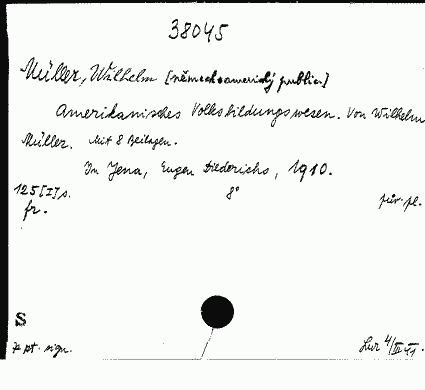 38045
Müller, Wilhelm [německoamerický public.]
Amerikanisches Volksbildungswesen. Von Wilhelm
Müller. Mit 8 Beilagen.
In Jena, Eugen Diederichs, 1910.
125[I] s. 8° pův. pl.
fr.
S
Z pt. sign. 4/III 41.